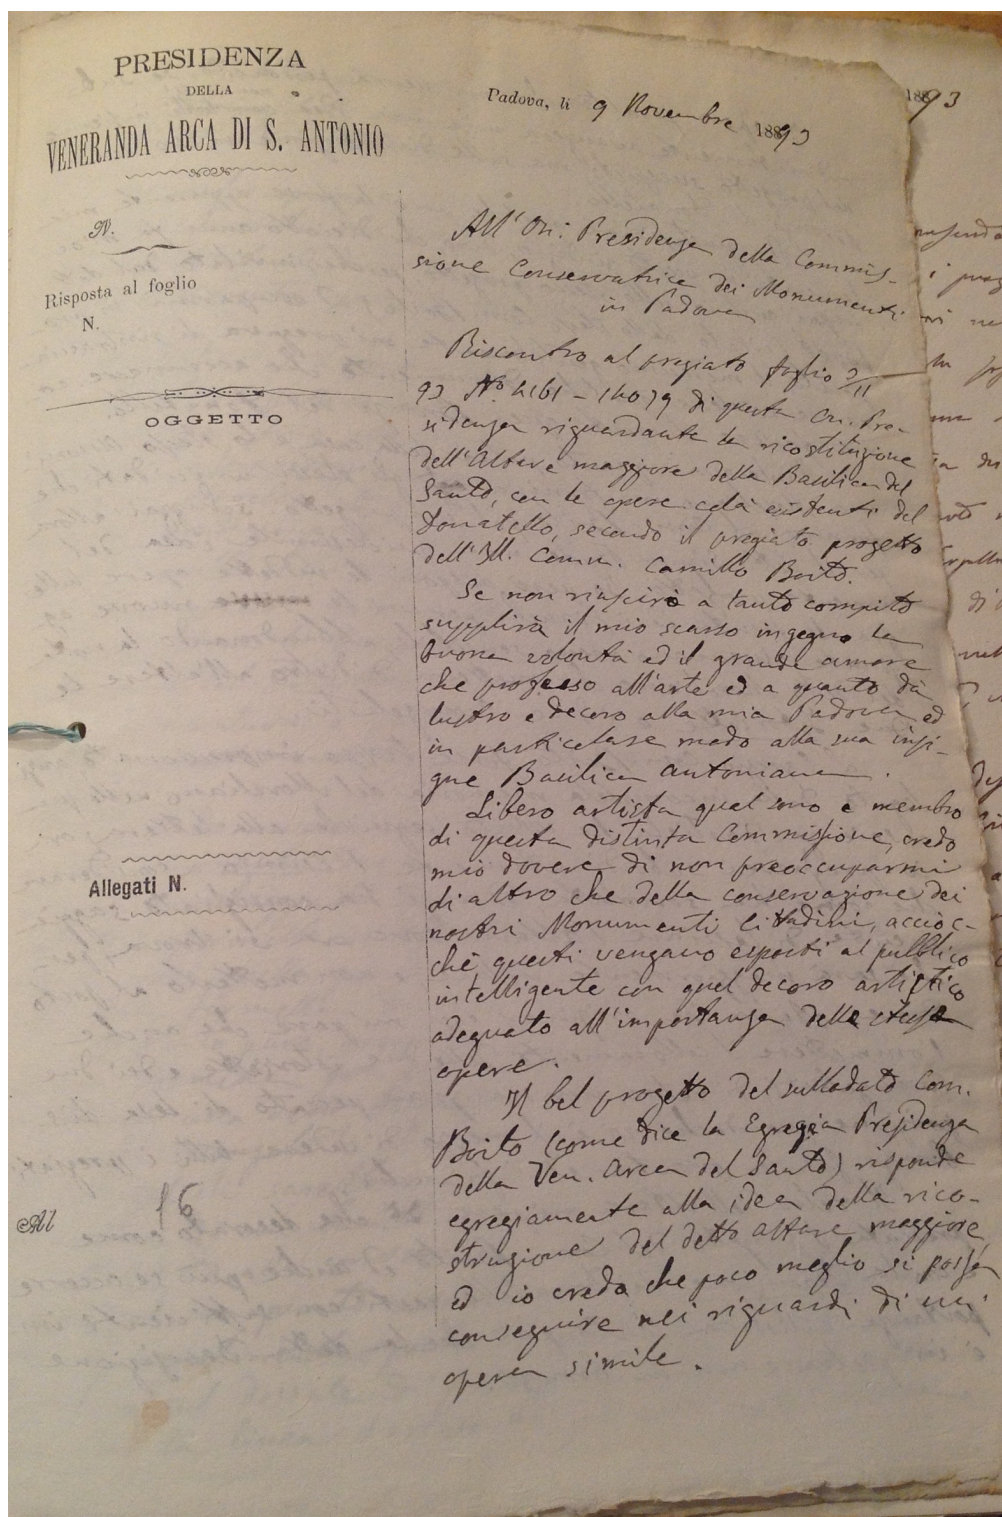 PRESIDENZA
DELLA
VENERANDA ARCA DI S. ANTONIO
N.
Risposta al foglio
N.
OGGETTO
Allegati N.
16
Padova, li 9 Novembre 1893
1893
All'On: Presidenza della Commis-
sione Conservatrice dei Monumenti
in Padova
Riscontro al pregiato foglio 3/11
93 No. 4161 - 14079 di questa On. Pre-
sidenza riguardante la ricostituzione
dell'Altare maggiore della Basilica del
Santo, con le opere colà esistenti del
Donatello, secondo il pregiato progetto
dell'Ill. Comm. Camillo Boito.
Se non riuscirò a tanto compito
supplirà il mio scarso ingegno la
buona volontà ed il grande amore
che professo all'arte ed a quanto dà
lustro e decoro alla mia Padova ed
in particolare modo alla sua insi-
gne Basilica Antoniana.
Libero artista qual sono e membro
di questa distinta Commissione, credo
mio dovere di non preoccuparmi
di altro che della conservazione dei
nostri Monumenti Cittadini, acciòc-
chè, questi vengano esposti al pubblico
intelligente con quel decoro artistico
adeguato all'importanza delle stesse
opere.
Il bel progetto del sullodato Com.
Boito (come dice la Egregia Presidenza
della Ven. Arca del Santo) risponde
egregiamente alla idea della rico-
struzione del detto Altare maggiore
ed io credo che poco meglio si possa
conseguire nei riguardi di un'
opera simile.